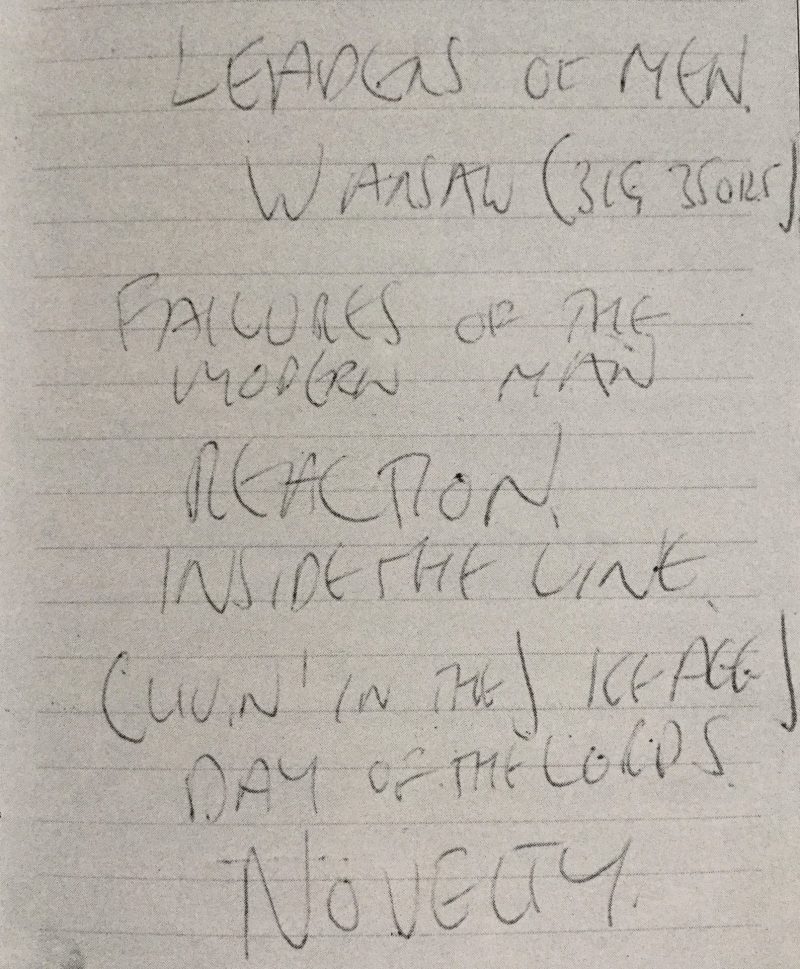 LEADERS OF MEN.
WARSAW (31G 350125)
FAILURES OF THE
MODERN MAN
REACTION.
INSIDE THE LINE.
(LIVIN' IN THE) ICE AGE)
DAY OF THE LORDS.
NOVELTY.